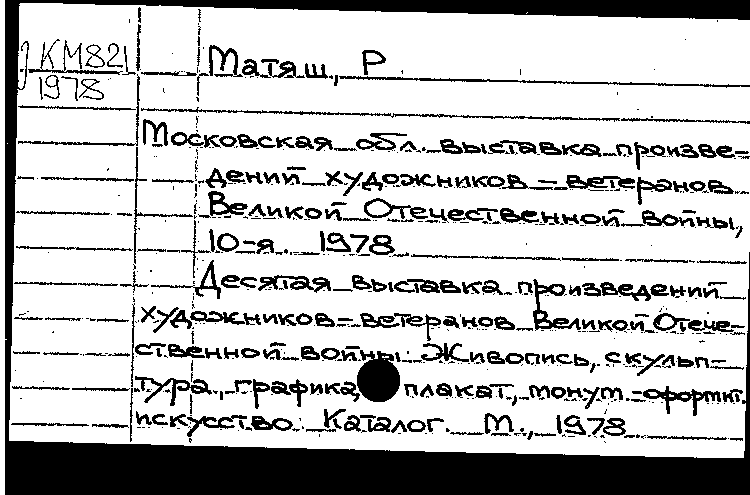 КМ821 Матяш, Р
1978
Московская обл. выставка произве-
дений художников - ветеранов
Великой Отечественной войны,
10-я. 1978
Десятая выставка произведений
художников-ветеранов Великой Отече-
ственной войны. Живопись, скульп-
тура, графика, плакат, монум.-офорт
искусство. Каталог. М., 1978